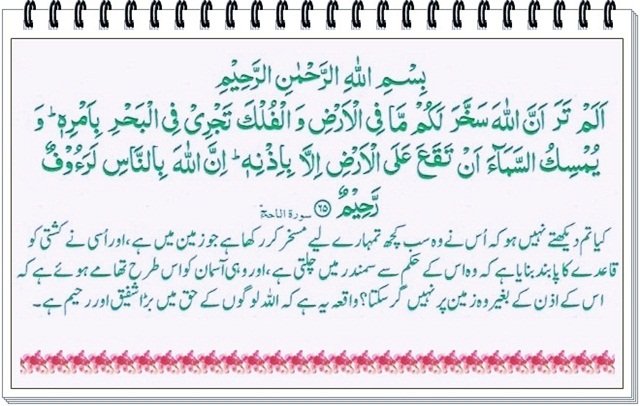 بِسْمِ اللهِ الرَّحْمٰنِ الرَّحِيْمِ
اَلَمْ تَرَ اَنَّ اللهَ سَخَّرَ لَكُمْ مَّا فِى الْاَرْضِ وَ الْفُلْكَ تَجْرِىْ فِى الْبَحْرِ بِاَمْرِهٖ ؕ وَ
يُمْسِكُ السَّمَآءَ اَنْ تَقَعَ عَلَى الْاَرْضِ اِلَّا بِاِذْنِهٖ ؕ اِنَّ اللهَ بِالنَّاسِ لَرَءُوْفٌ
رَّحِيْمٌ ﴿۶۵﴾ سورة الحج
کیا تم دیکھتے نہیں ہو کہ اُس نے وہ سب کچھ تمہارے لیے مسخر کر رکھا ہے جو زمین میں ہے، اور اُسی نے کشتی کو
قاعدے کا پابند بنایا ہے کہ وہ اس کے حکم سے سمندر میں چلتی ہے، اور وہی آسمان کو اس طرح تھامے ہوئے ہے کہ
اس کے اذن کے بغیر وہ زمین پر نہیں گر سکتا؟ واقعہ یہ ہے کہ اللہ لوگوں کے حق میں بڑا شفیق اور رحیم ہے۔